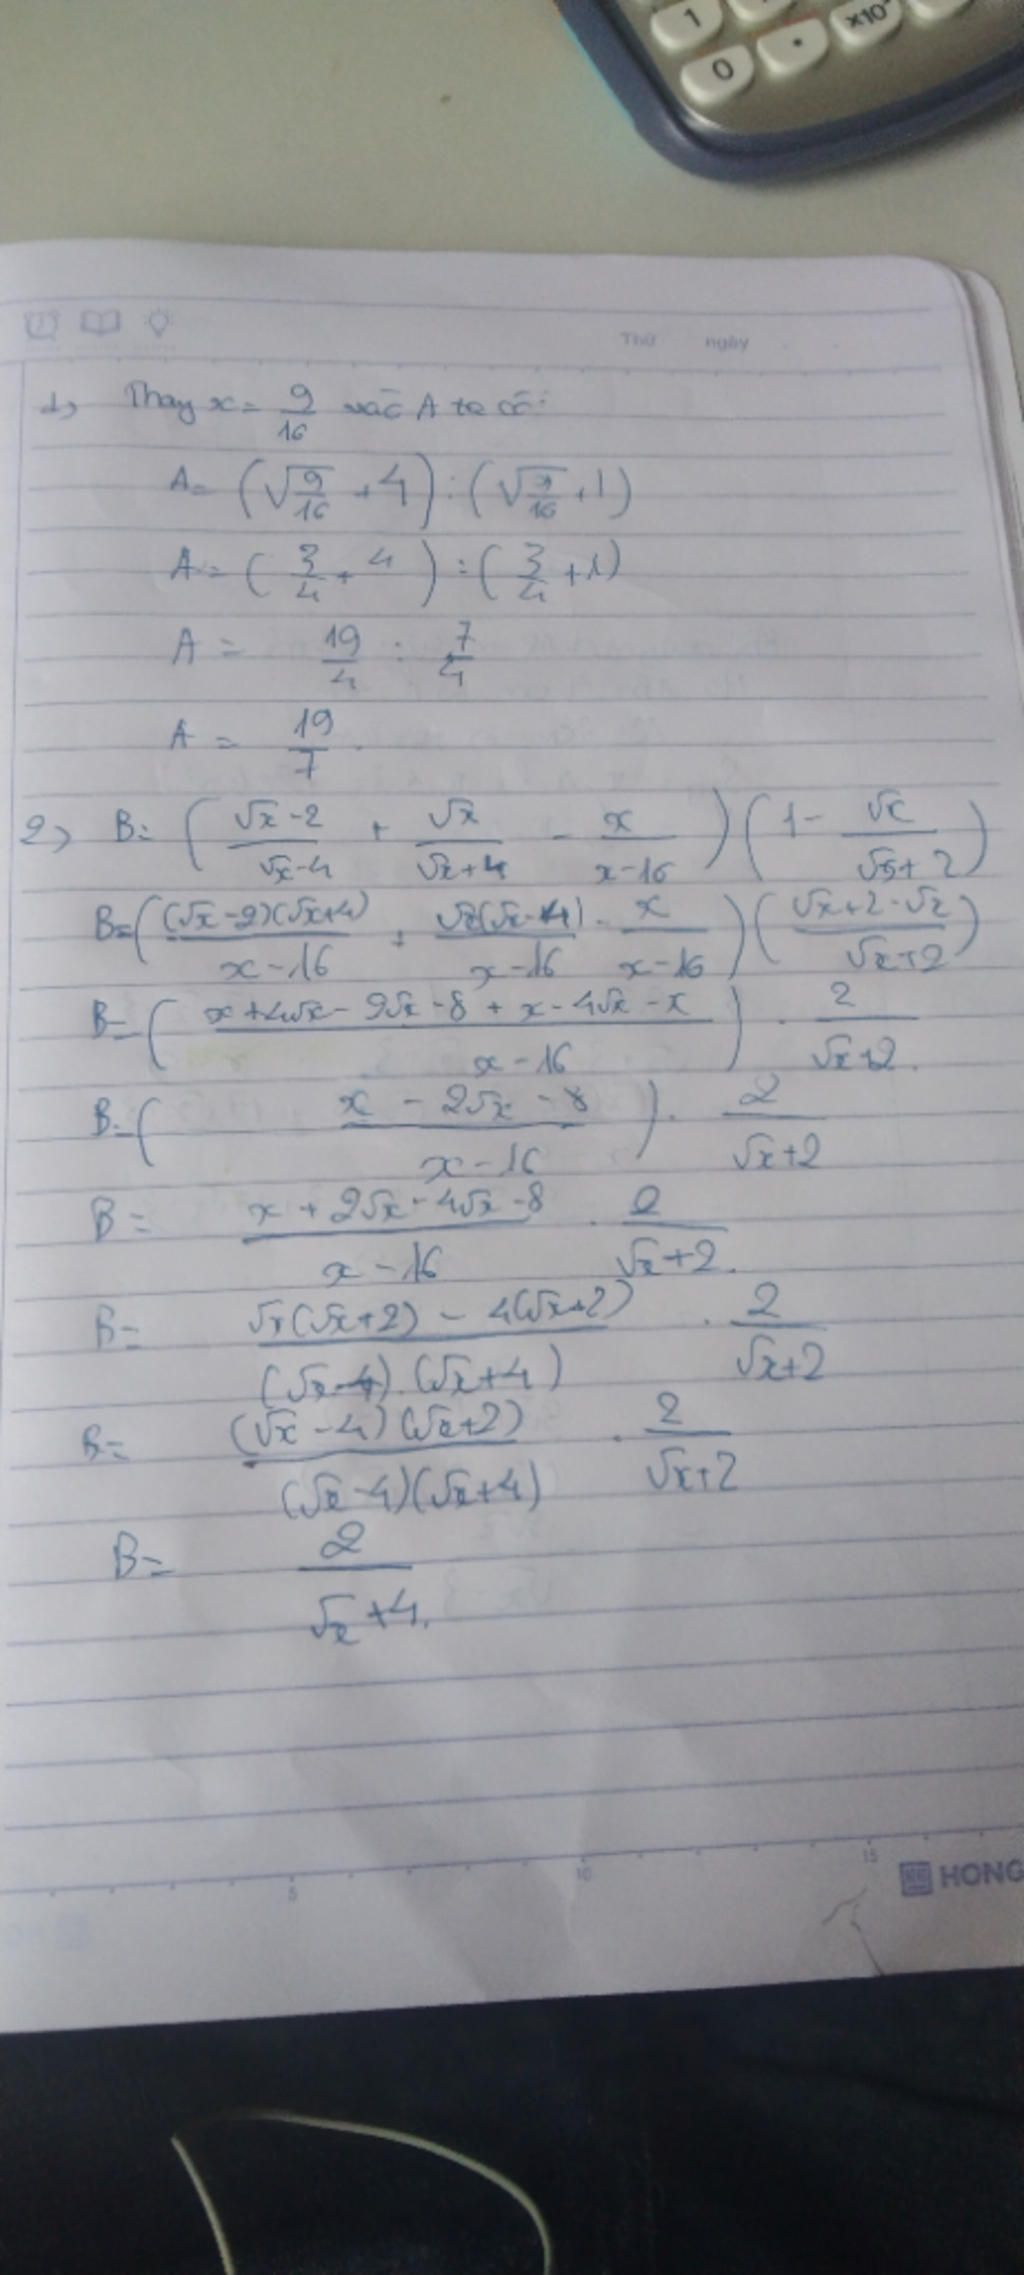 1
0
.
×10ˣ
Thứ ngày
1) Thay x = 9/16 vào A ta có:
A = (√(9/16) + 4) : (√(9/16) + 1)
A = (3/4 + 4) : (3/4 + 1)
A = 19/4 : 7/4
A = 19/7.
2) B = ((√x - 2)/(√x - 4) + √x/(√x + 4) - x/(x - 16)) (1 - √x/(√x + 2))
B = ((√x - 2)(√x + 4)/(x - 16) + √x(√x - 4)/(x - 16) - x/(x - 16)) ((√x + 2 - √x)/(√x + 2))
B = ((x + 4√x - 2√x - 8 + x - 4√x - x)/(x - 16)) . 2/(√x + 2).
B = ((x - 2√x - 8)/(x - 16)) . 2/(√x + 2)
B = (x + 2√x - 4√x - 8)/(x - 16) . 2/(√x + 2).
B = (√x(√x + 2) - 4(√x + 2))/((√x - 4).(√x + 4)) . 2/(√x + 2)
B = (√x - 4)(√x + 2)/((√x - 4)(√x + 4)) . 2/(√x + 2)
B = 2/(√x + 4).
5 10 15
HONG